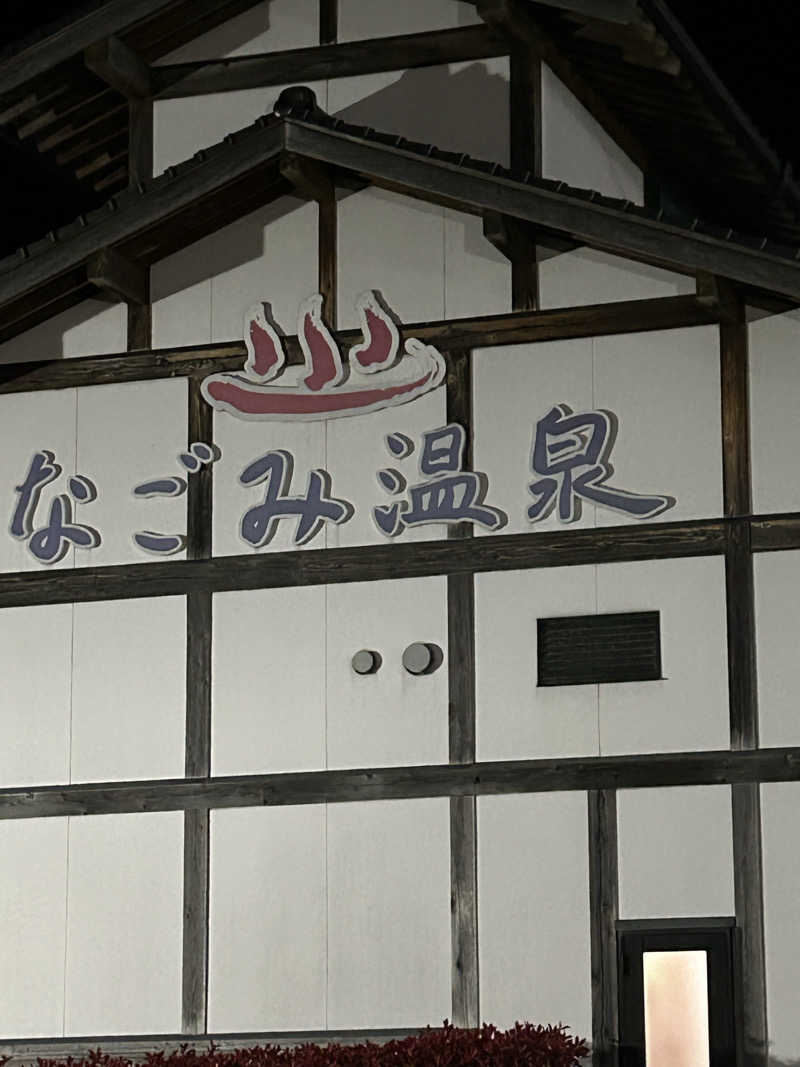 なごみ温泉